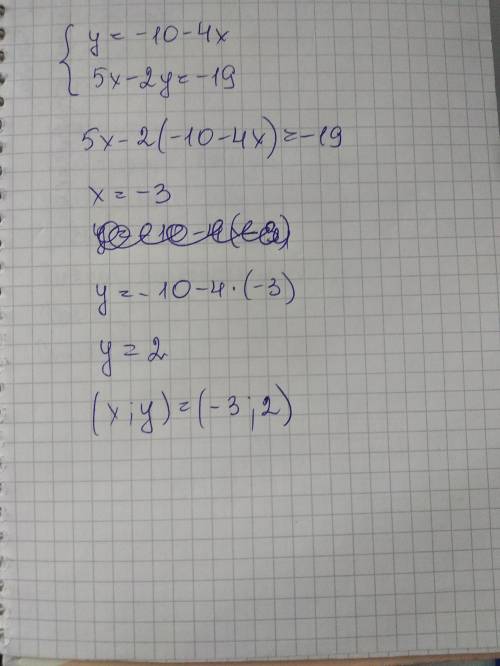 y = -10-4x
5x-2y=-19
5x-2(-10-4x)=-19
x = -3
y = -10-4·(-3)
y = 2
(x;y)=(-3;2)